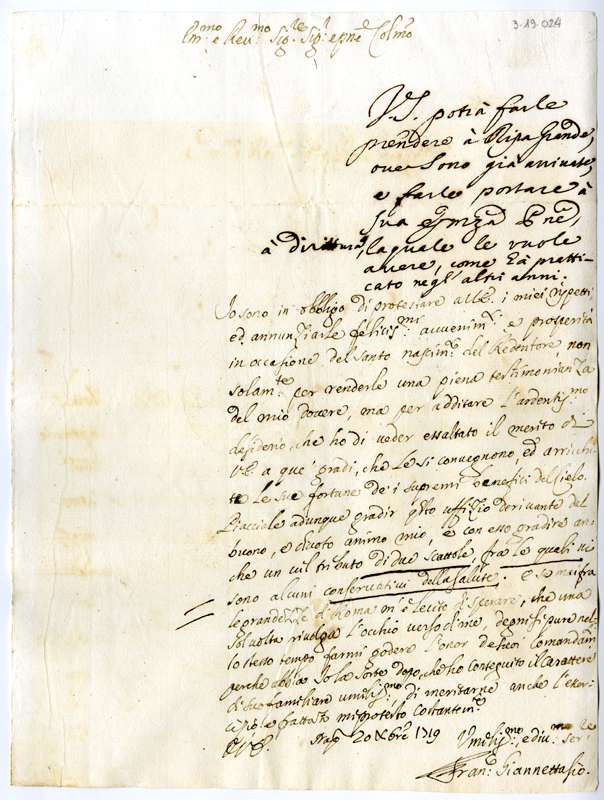 3-19-024
Em.mo e Rev.mo Sig.re Sig.r e pne Colmo
V.S. potrà farle
prendere à Ripa Grande,
oue sono già arriuate,
e farle portare à
sua
à dirittura, laquale le vuole
auere, come hà pratti-
cato negl'altri anni.
Io sono in obbligo di protestare all'E. i miei rispetti,
ed annunziarle feliciss.mi auuenim.ti e prosperità
in occasione del Santo nascim.to del Redentore, non
solam.te per renderle una piena testimonianza
del mio douere, ma per additare l'ardentiss.mo
desiderio, che ho di ueder essaltato il merito di
V.E. a que' gradi, che le si conuegnono, ed arricchi-
te le sue fortune de' i supremi benefici del Cielo.
Piacciale adunque gradir q.sto uffizio deriuante dal
buono, e diuoto animo mio, e con esso gradire an-
che un uil tributo di due scattole, fra le quali ui
sono alcuni conseruatiui della salute. E se mai fra
le grandezze di Roma m'è lecito di sperare, che una
sol uolta riuolga l'occhio uerso di me, degnisi pure nel-
lo stesso tempo farmi godere l'onor de' suoi comandam.ti
perche abbia io la sorte dopo, che ho conseguito il carattere
di suo familiare umiliss.mo di meritarne anche l'
e frattanto mi protesto costantem.te
Nap. 20 Xbre 1719 Vmiliss.mo, e diu.mo ser.re
Fran.co Giannettasio.